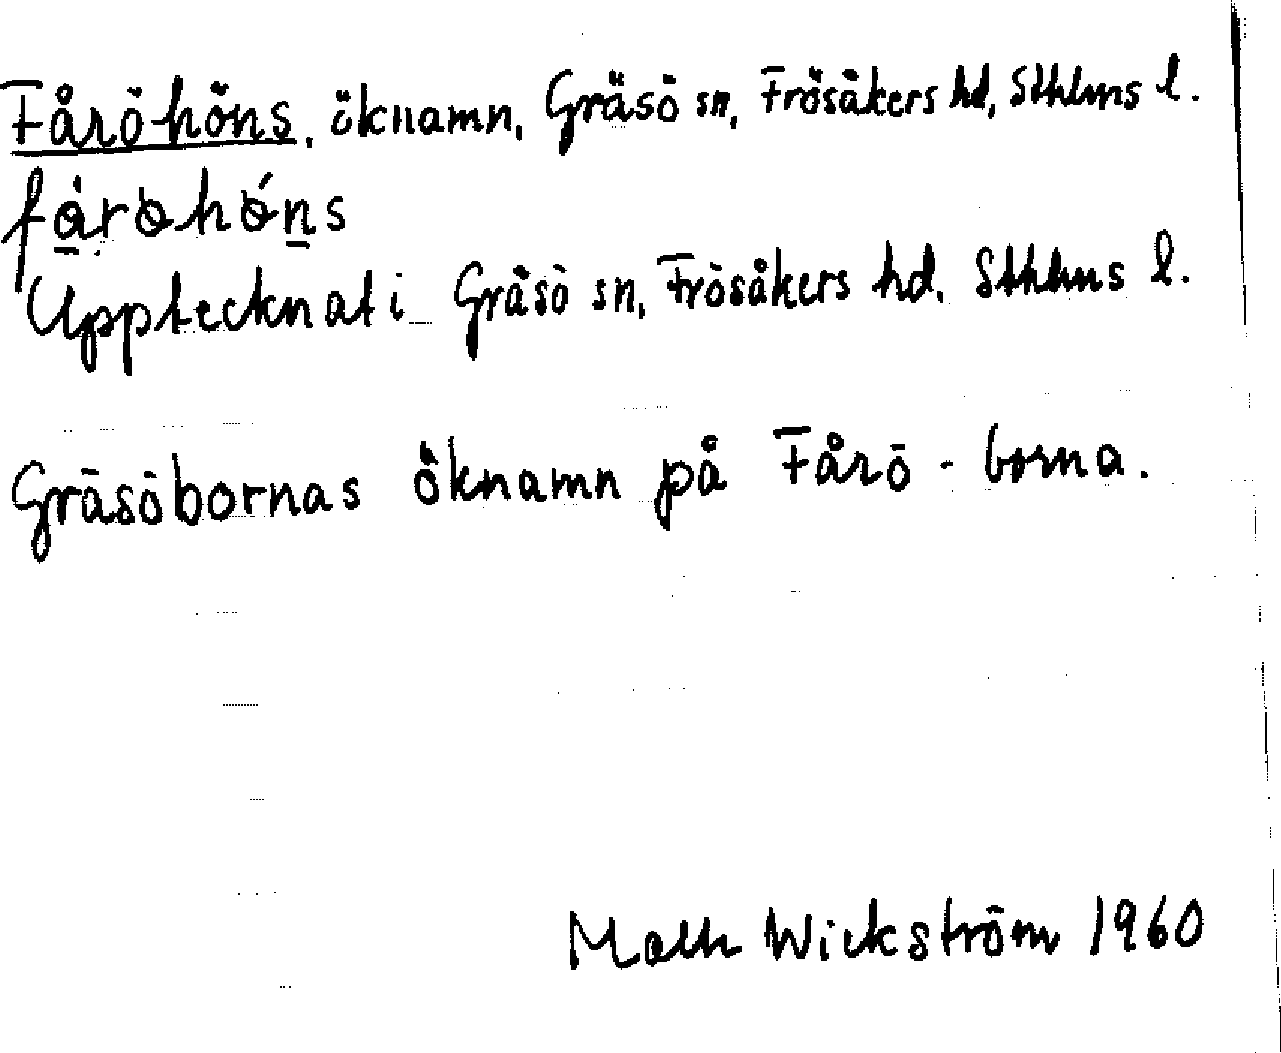 Fåröhöns, öknamn, Gräsö sn, Frösåkers hd, Sthlms l.
Upptecknat i Gräsö sn, Frösåkers hd. Sthlms l.
Gräsöbornas öknamn på Fårö-borna.
Wickström 1960